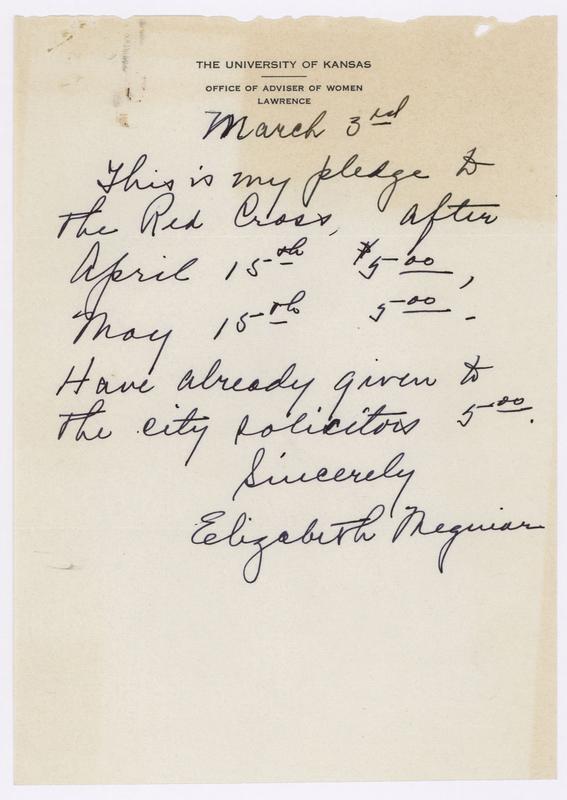 THE UNIVERSITY OF KANSAS
OFFICE OF ADVISER OF WOMEN
LAWRENCE
March 3rd
This is my pledge to
the Red Cross, after
April 15th $5.00,
May 15th 5.00.
Have already given to
the city solicitors 5.00.
Sincerely
Elizabeth Meguiar